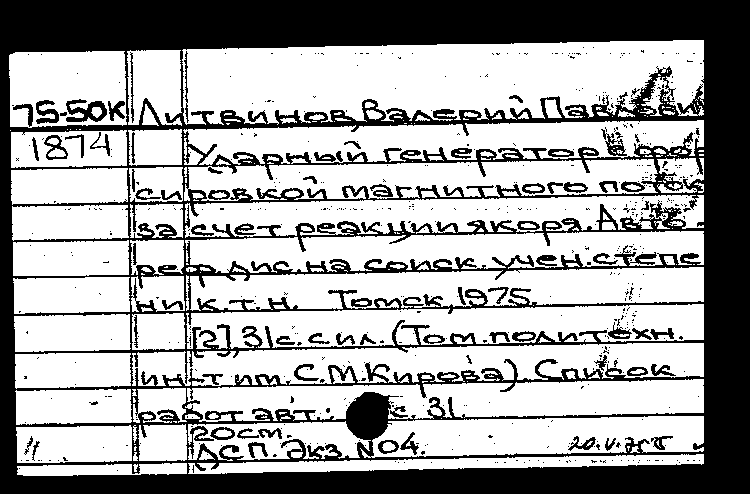 75-50К Литвинов, Валерий Павлови
1874 Ударный генератор с фор
сировкой магнитного поток
за счет реакции якоря. Авто-
реф. дис. на соиск. учен. степе
ни к.т.н. Томск, 1975.
[2], 31 с. с ил. (Том. политехн.
ин-т им. С.М.Кирова). Список
работ авт.: с. 31.
20 см.
ДСП. Экз. N04.
20.V.75